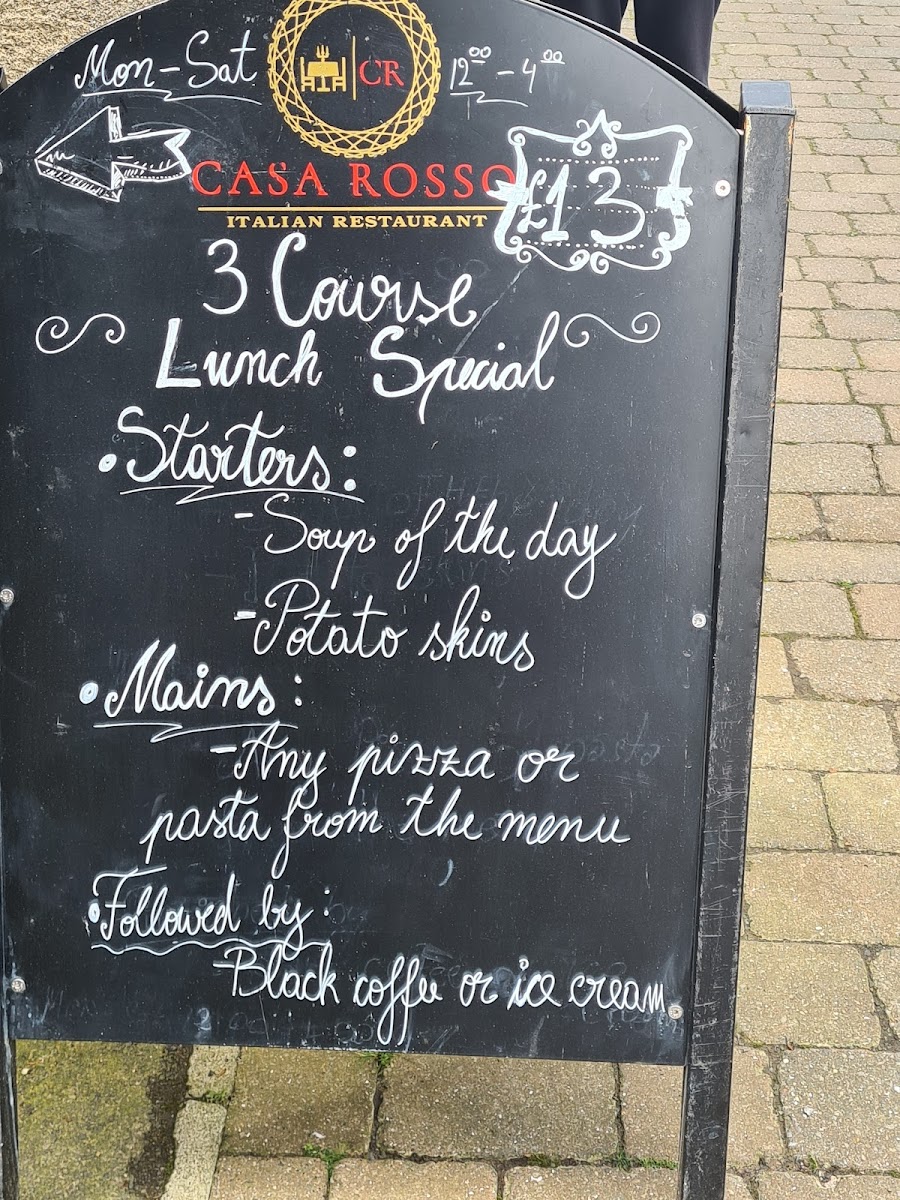 Mon-Sat
CR
12⁰⁰ - 4⁰⁰
CASA ROSSO
£13
ITALIAN RESTAURANT
3 Course
Lunch Special
• Starters:
- Soup of the day
- Potato skins
• Mains:
- Any pizza or
pasta from the menu
• Followed by:
- Black coffee or ice cream